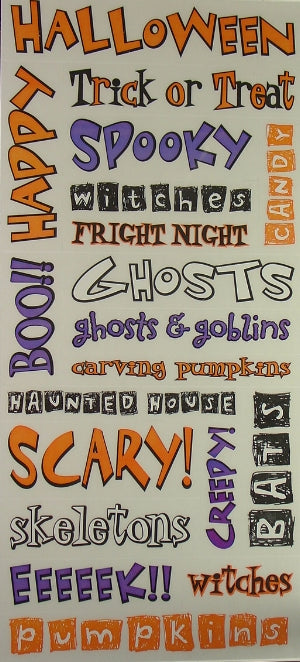 HALLOWEEN
HAPPY
Trick or Treat
SPOOKY
CANDY
witches
FRIGHT NIGHT
BOO!!
GHOSTS
ghosts & goblins
carving pumpkins
HAUNTED HOUSE
SCARY!
CREEPY!
BATS
skeletons
EEEEEK!!
witches
pumpkins